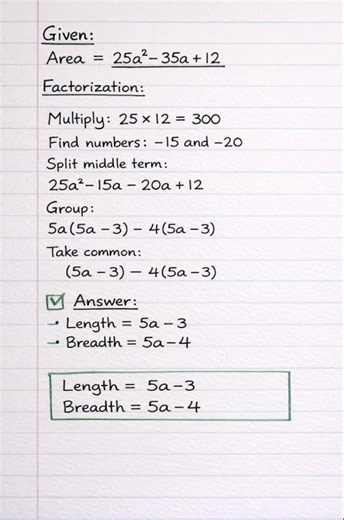 Given:
Area = 25a² − 35a + 12
Factorization:
Multiply: 25 × 12 = 300
Find numbers: −15 and −20
Split middle term:
25a² − 15a − 20a + 12
Group:
5a(5a − 3) − 4(5a − 3)
Take common:
(5a − 3) − 4(5a − 3)
☑ Answer:
→ Length = 5a − 3
→ Breadth = 5a − 4
Length = 5a − 3
Breadth = 5a − 4